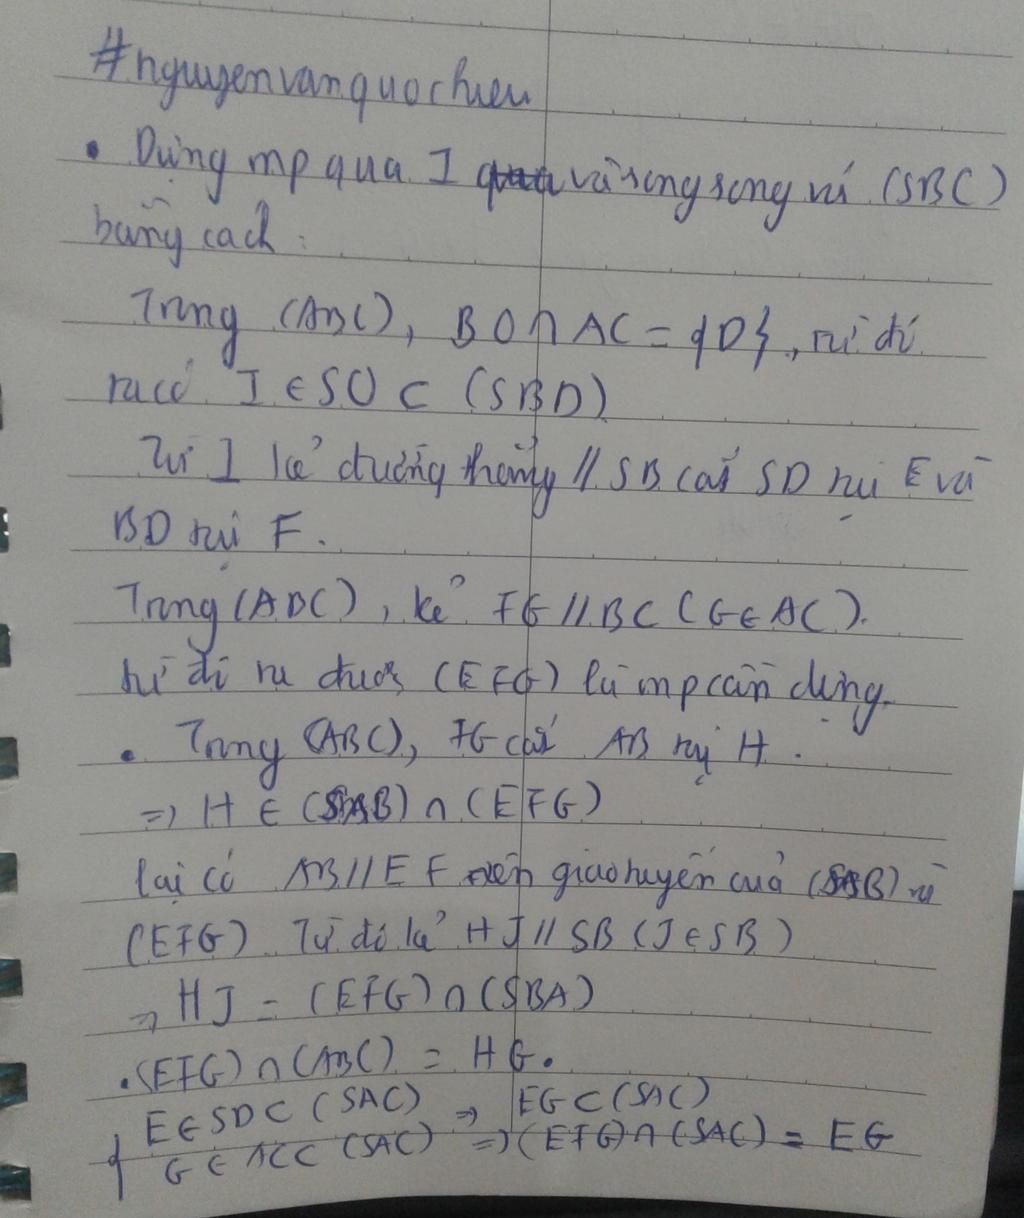 #nguyenvanquochieu
• Dựng mp qua I và song song với (SBC)
bằng cách:
Trong (ABC), BO∩AC = {D}, từ đó
ta có I ∈ SO ⊂ (SBD)
Từ I kẻ đường thẳng // SB cắt SD tại E và
BD tại F.
Trong (ABC), kẻ FG // BC (G∈AC).
từ đó ta được (EFG) là mp cần dựng.
• Trong (ABC), FG cắt AB tại H.
=> H ∈ (SAB) ∩ (EFG)
lại có AB // EF nên giao tuyến của (SAB) và
(EFG) Từ đó kẻ HJ // SB (J∈SB)
=> HJ = (EFG) ∩ (SBA)
.(EFG) ∩ (ABC) = HG.
{ E∈SD⊂(SAC) => EG⊂(SAC)
G∈AC⊂(SAC) =>(EFG)∩(SAC) = EG